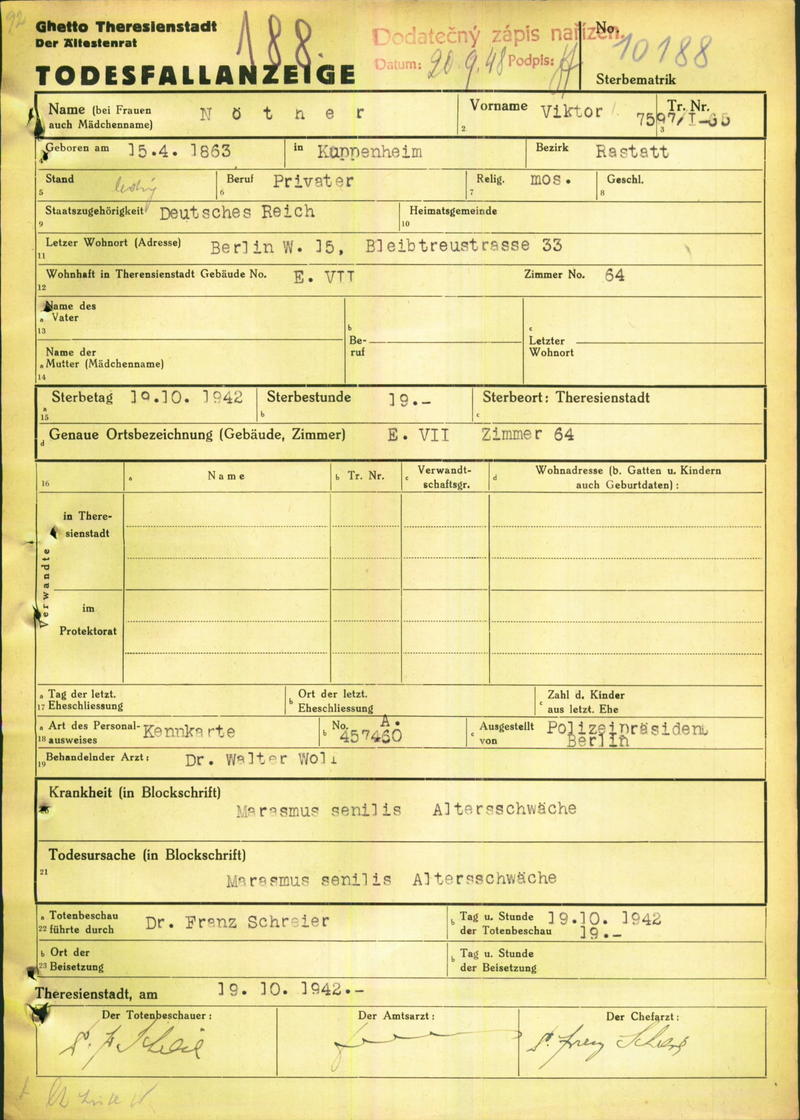 92
Ghetto Theresienstadt
Der Ältestenrat
TODESFALLANZEIGE
188.
Dodatečný zápis nařízen.
Datum: 20.9.48 Podpis:
No. 10188
Sterbematrik
Name (bei Frauen auch Mädchenname) Nöther
Vorname Viktor
2
Tr. Nr.
3
Geboren am 15.4. 1863 in Kuppenheim Bezirk Rastatt
4
Stand ledig Beruf Privater Relig. mos. Geschl.
5 6 7 8
Staatszugehörigkeit Deutsches Reich Heimatsgemeinde
9 10
Letzer Wohnort (Adresse) Berlin W. 15, Bleibtreustrasse 33
11
Wohnhaft in Therensienstadt Gebäude No. E. VII Zimmer No. 64
12
Name des
a Vater
13
b Be-ruf
c Letzter Wohnort
Name der
a Mutter (Mädchenname)
14
Sterbetag 19.10. 1942 Sterbestunde 19.- Sterbeort: Theresienstadt
a 15 b c
d Genaue Ortsbezeichnung (Gebäude, Zimmer) E. VII Zimmer 64
16 a Name b Tr. Nr. c Verwandt-schaftsgr. d Wohnadresse (b. Gatten u. Kindern auch Geburtdaten):
Verwandte
in There-
sienstadt
im
Protektorat
a Tag der letzt. b Ort der letzt. c Zahl d. Kinder
17 Eheschliessung Eheschliessung aus letzt. Ehe
a Art des Personal- Kennkarte b No. A. c Ausgestellt Polizeipräsident
18 ausweises 457460 von Berlin
19 Behandelnder Arzt: Dr. Walter
Krankheit (in Blockschrift)
Marasmus senilis Altersschwäche
Todesursache (in Blockschrift)
21
Marasmus senilis Altersschwäche
a Totenbeschau Dr. Franz Schreier b Tag u. Stunde 19.10. 1942
22 führte durch der Totenbeschau 19.-
b Ort der b Tag u. Stunde
23 Beisetzung der Beisetzung
Theresienstadt, am 19. 10. 1942.-
Der Totenbeschauer: Der Amtsarzt: Der Chefarzt: